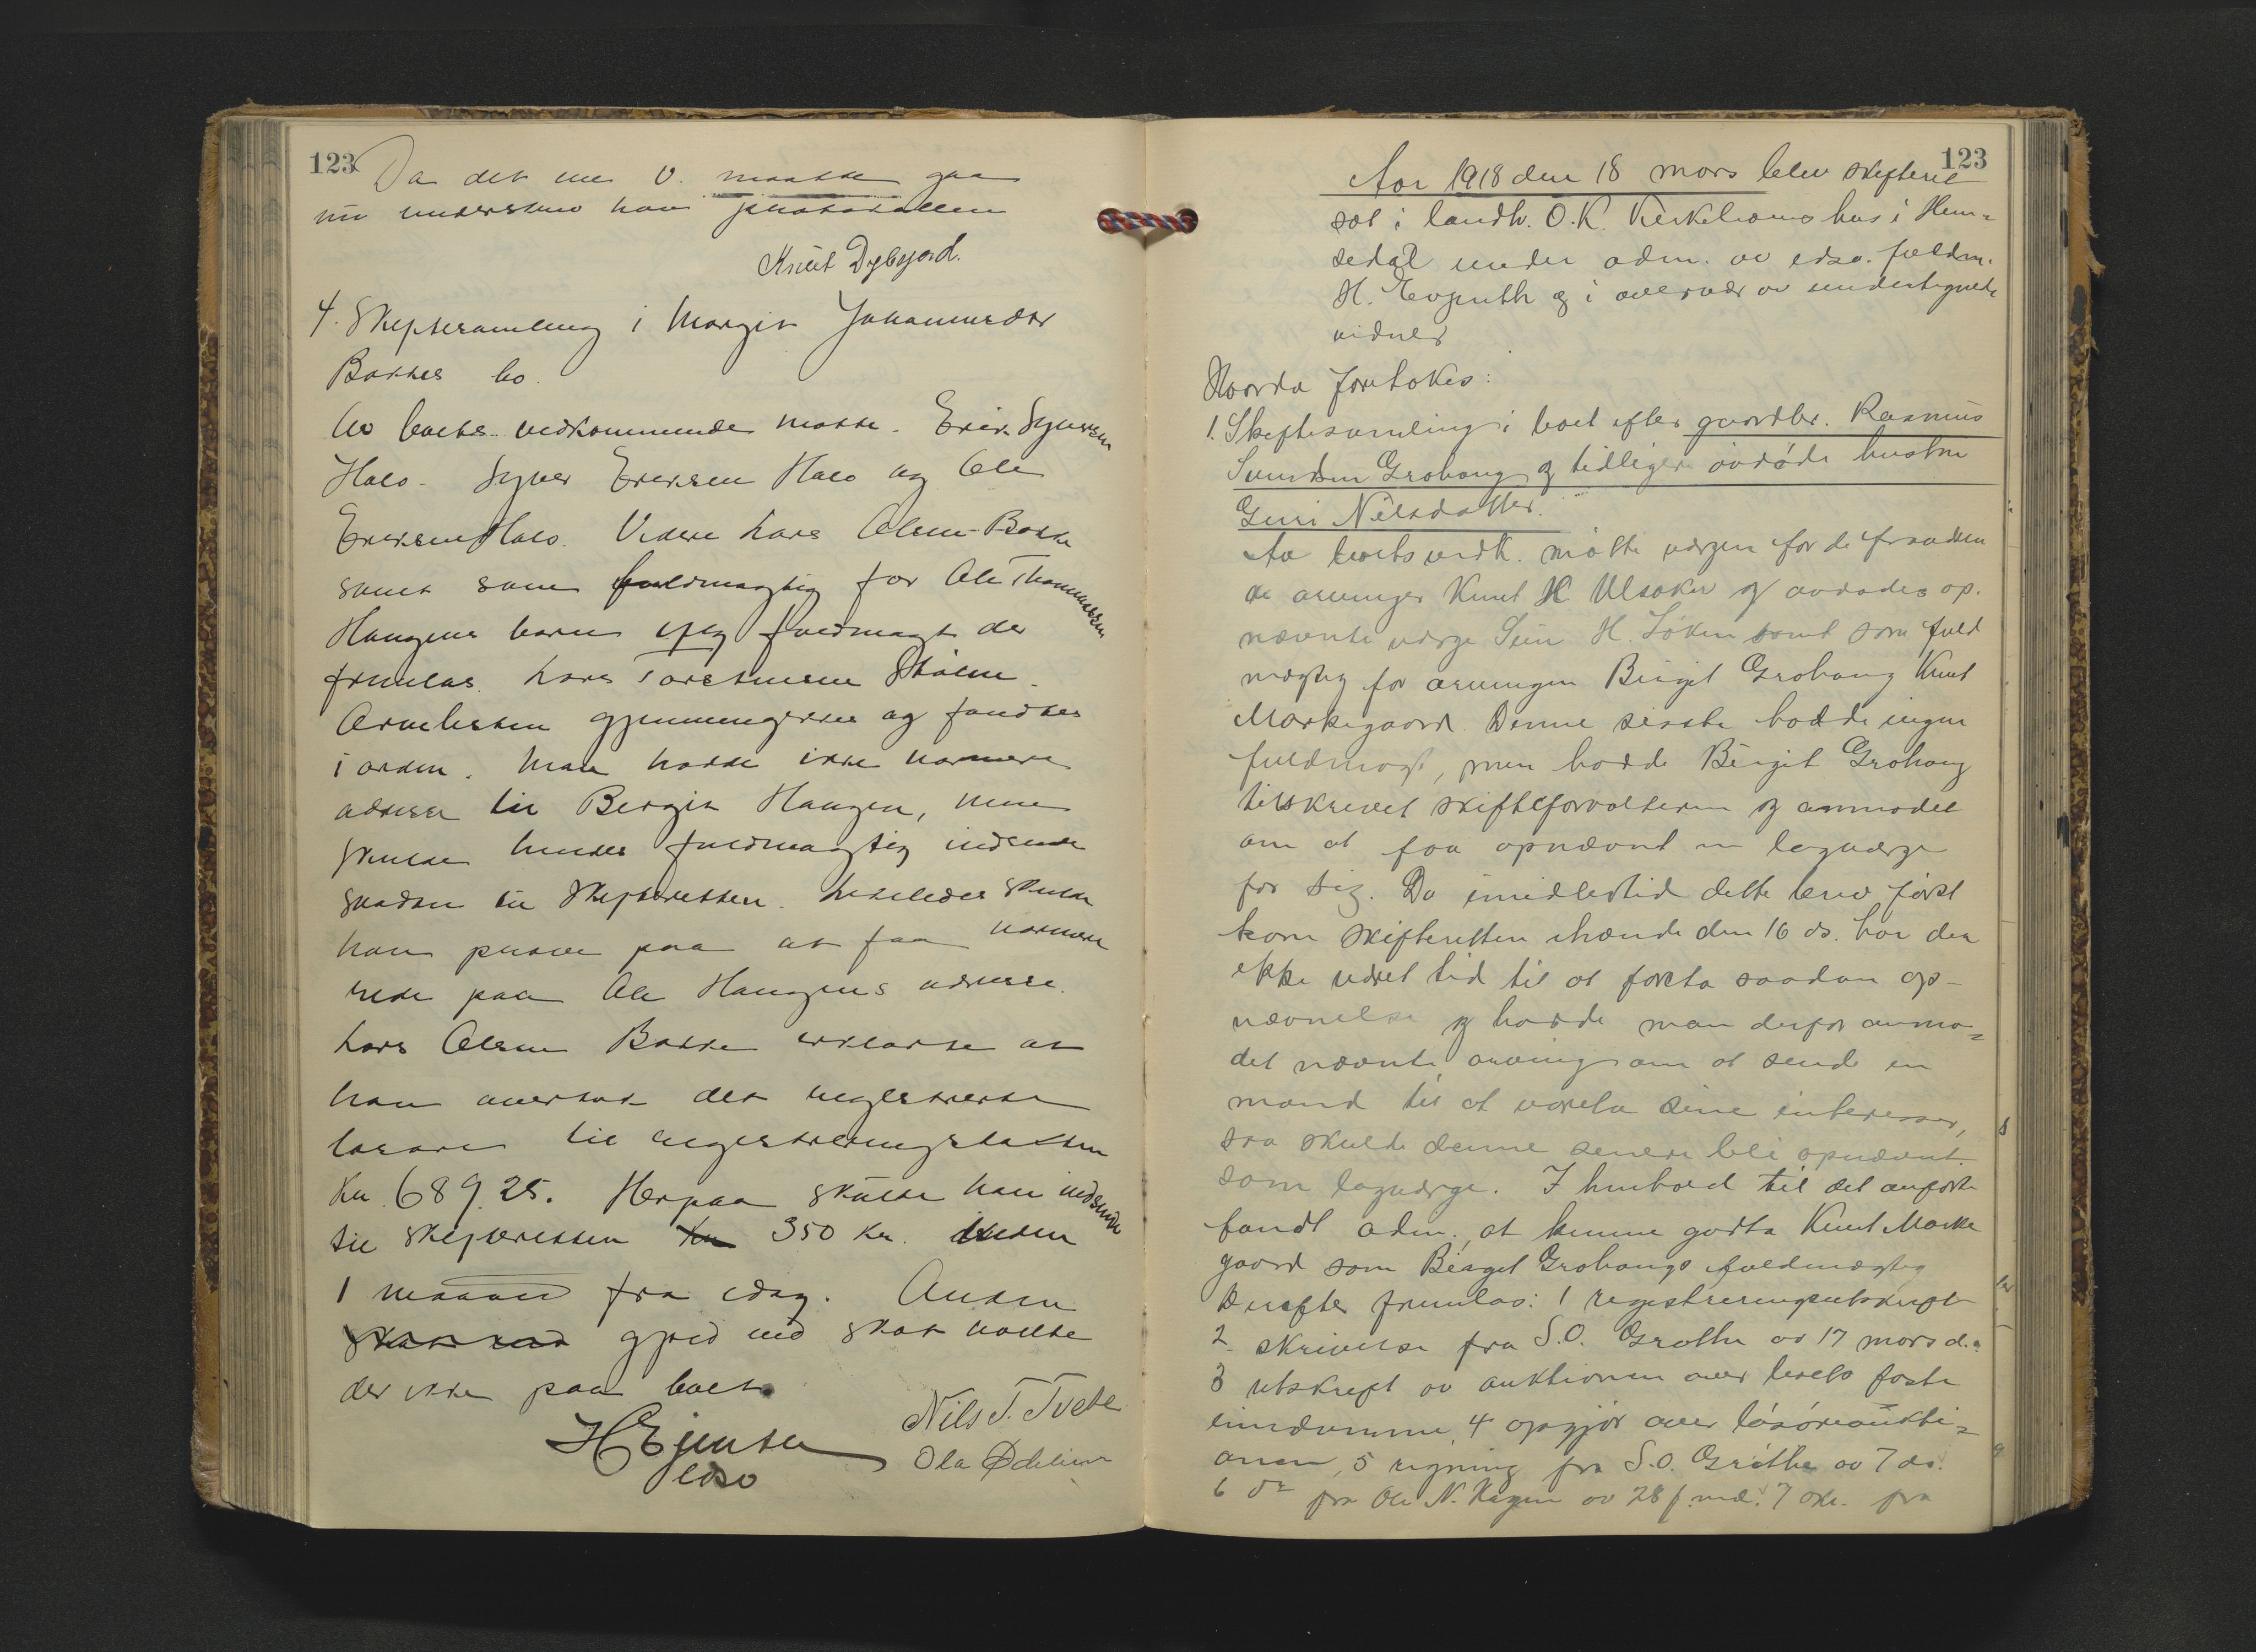 123
Da det nu V. maatte gaa
nu underskrev han protokollen
Knut Dybgjord.
4. Skiftesamling i Margit Johannesdtr
Bakkes bo.
Av boets vedkommende møtte Erik Syversen
Halo Syver Eriksen Halo og Ole
Eriksen Halo. Videre Lars Olsen Bakke
samt som fuldmægtig for Ole Thomassen
Haugens barn iflg fuldmagt der
fremlas Lars Torstensen
Arvelisten gjennemgikkes og fandtes
i orden. Man hadde ikke nærmere
adresse til Bergit Haugen, men
skulde hendes fuldmægtig indsende
saadan til skifteretten. Likeledes skulde
han prøve paa at faa nærmere
rede paa Ole Haugens adresse.
Lars Olsen Bakke erklærte at
han overtok det registrerte
løsøre til registreringstaksten
Kr. 689.25. Herpaa skulde han indsende
til skifteretten 350 kr. inden
1 maaned fra idag. Anden
gjeld end skat hvilte
der ikke paa boet.
HEjentsen
edsv
Nils T. Tvete
Ola Ødelien
123
Aar 1918 den 18 mars blev skifteret
sat i landh. O.K. Kirkebøens hus i Hem-
sedal under adm. av edsv. fuldm.
H. Evjenth og i overvær av undertegnede
vidner
Hvorda foretokes:
1. Skiftesamling i boet efter gaardbr. Rasmus
Svendsen Grøhaug og tidligere avdøde hustru
Guri Nilsdatter.
Av boets vedk. møtte værgen for de fraværen
de arvinger Knut H. Ulsaker og avdødes op-
nævnte værge Svein H. Løken samt som fuld
mægtig for arvingen Birgit Grøhaug Knut
Markegaard. Denne sisste hadde ingen
fuldmagt, men hadde Birgit Grøhaug
tilskrevet skifteforvalteren og anmodet
om at faa opnævnt en lagværge
for sig. Da imidlertid dette brev først
kom skifteretten ihænde den 16 ds. har der
ikke været tid til at foreta saadan op-
nævnelse og hadde man derfor anmo-
det nævnte arving om at sende en
mand til at vareta sine interesser,
saa skulde denne senere bli opnævnt
som lagværge. I henhold til det anførte
fandt adm. at kunne godta Knut Marke
gaard som Birgit Grøhaugs fuldmægtig
Derefter fremlas: 1 registreringsutskrift
2 skrivelse fra S.O. Grøthe av 17 mars d.a
3 utskrift av auktionen over boets faste
eiendomme, 4 opgjør over løsøreaukti-
onen, 5 regning fra S.O. Grøthe av 7 ds.
6 do fra Ole N. Hagen av 28 f. md. 7 skr. fra